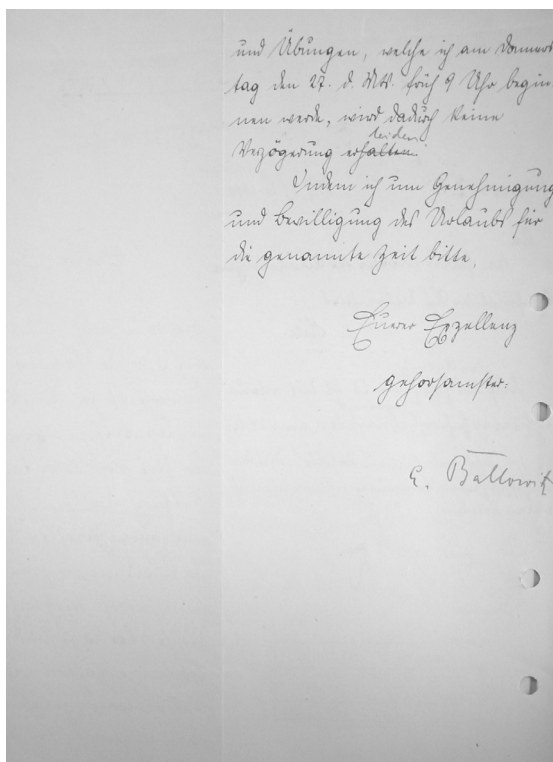 und Übungen, welche ich am Donners
tag den 27. d. Mts. früh 9 Uhr begin
nen werde, wird dadurch keine
leiden
Verzögerung erhalten.
Indem ich um Genehmigung
und Bewilligung des Urlaubs für
die genannte Zeit bitte,
Eurer Exzellenz
gehorsamster:
E. Ballowitz